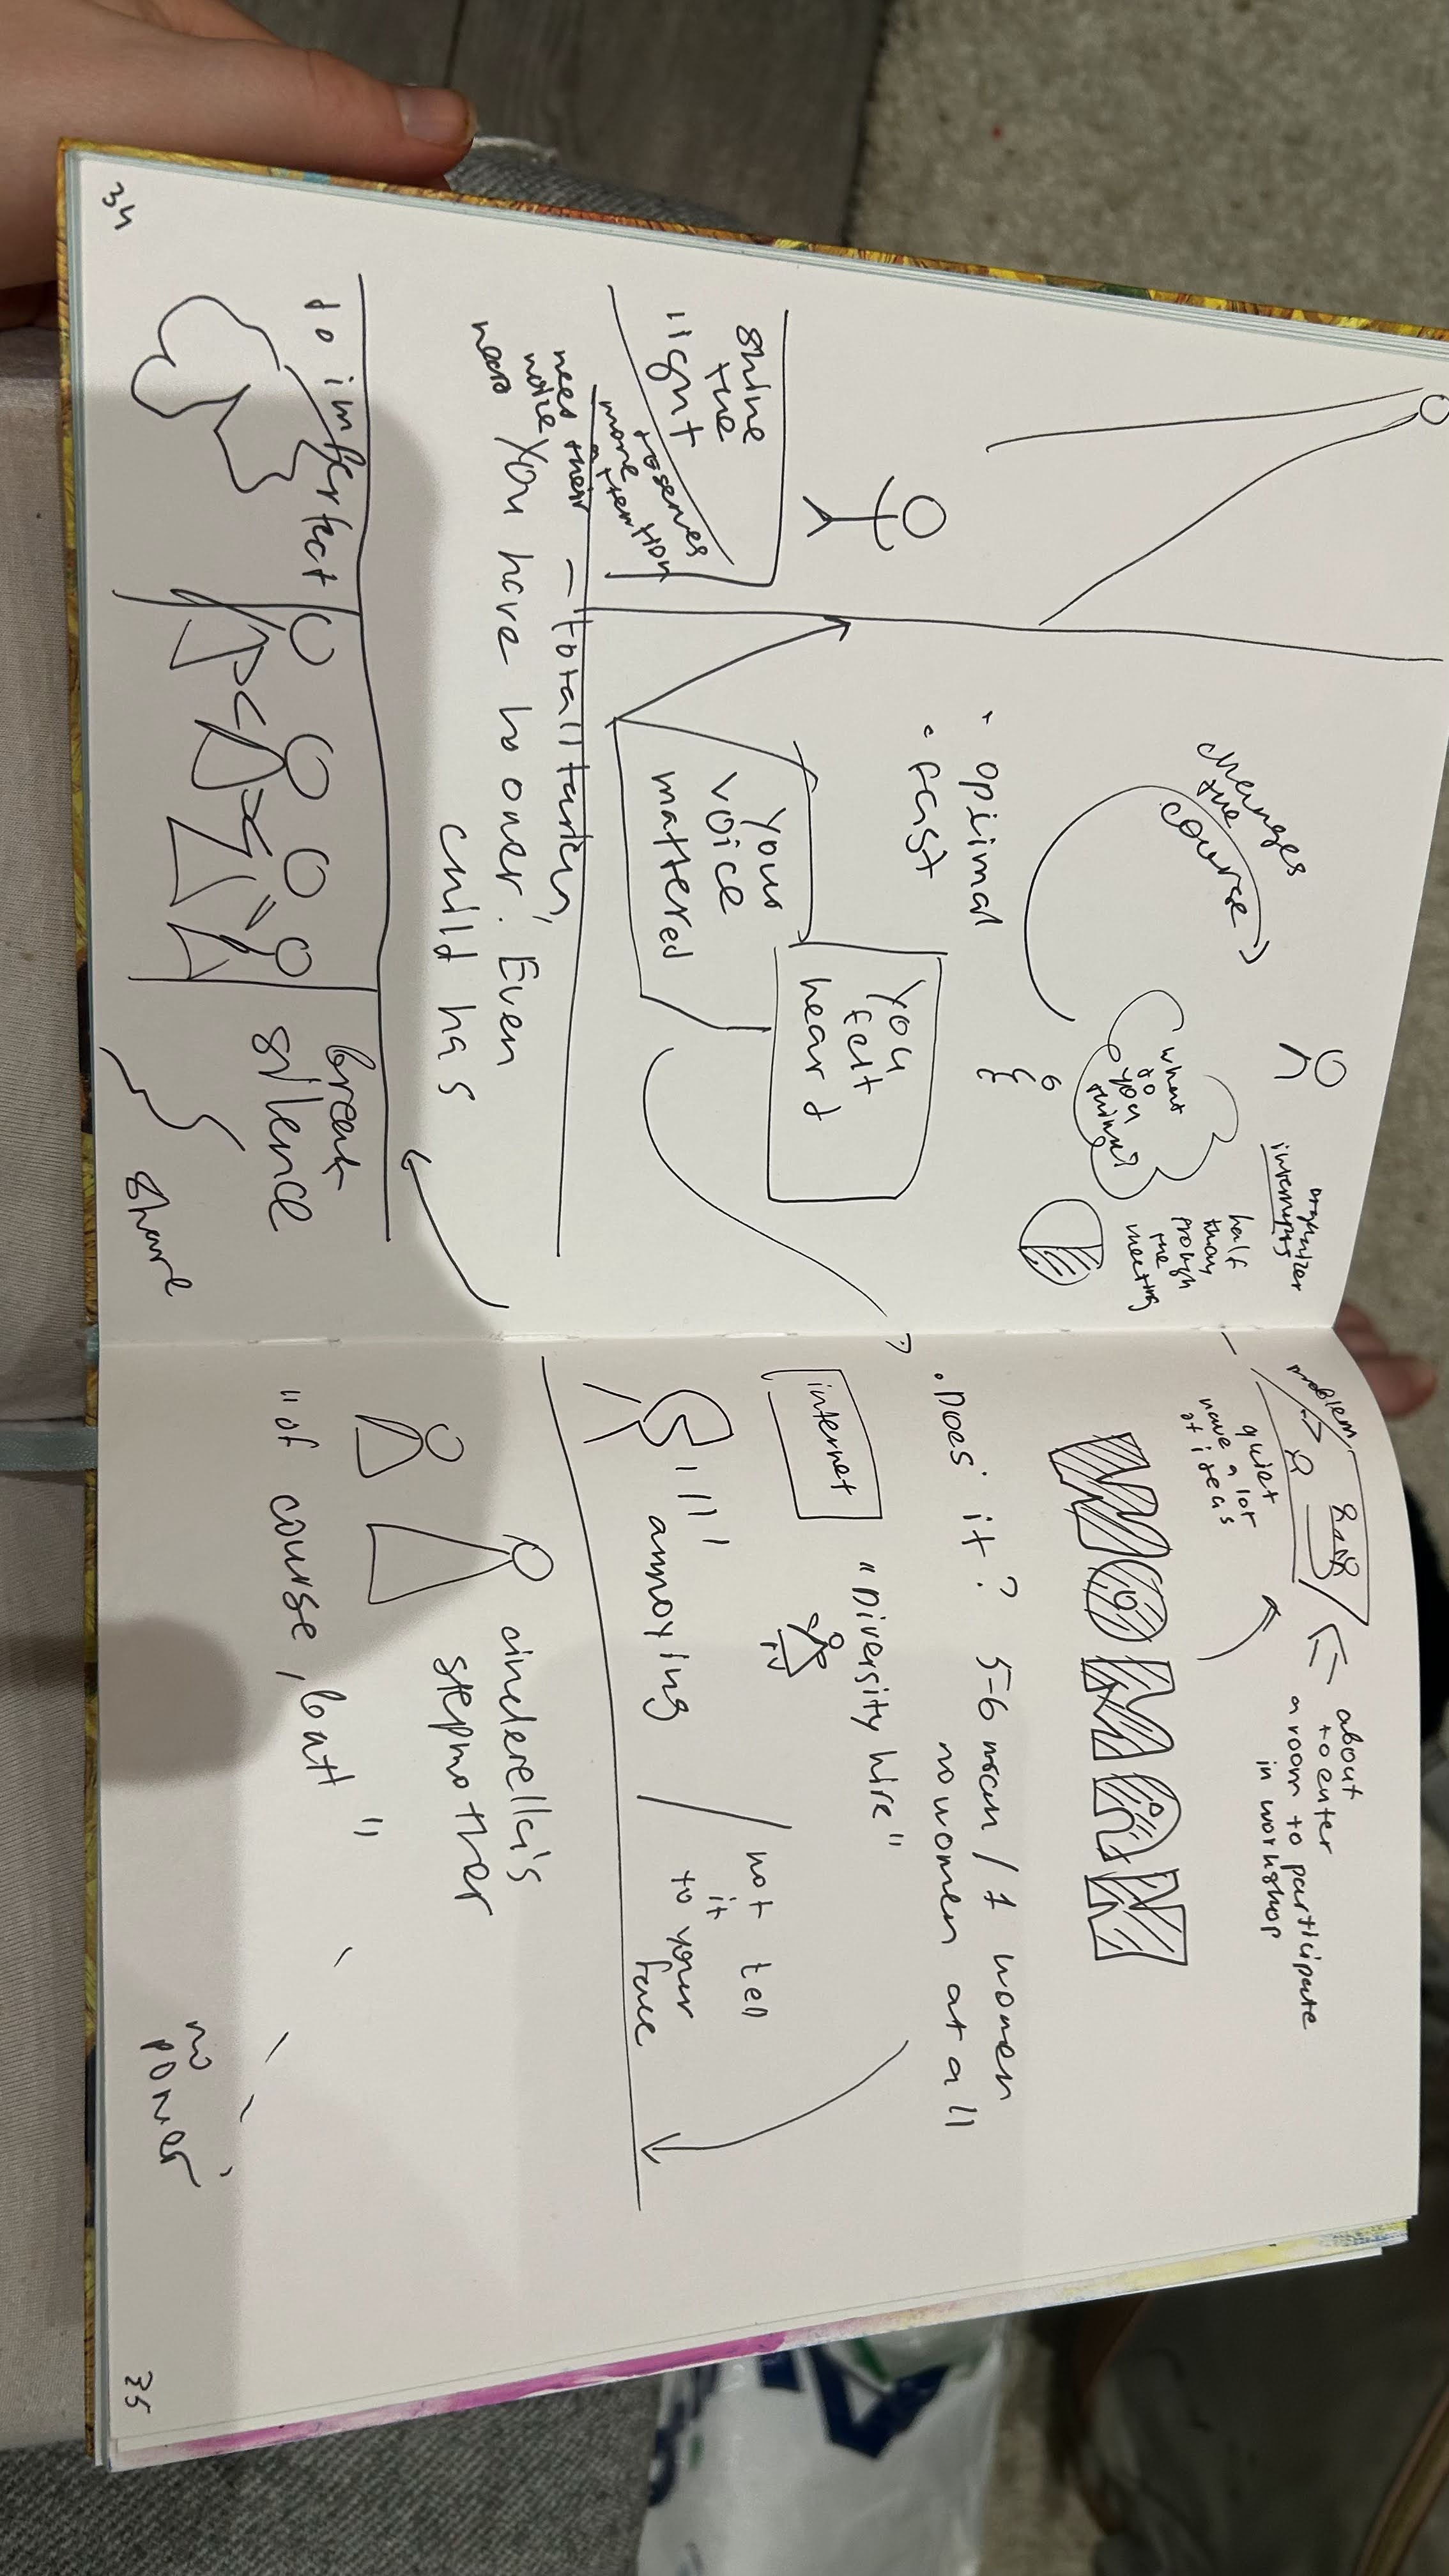 organizer
interrupts
half
the
meeting
changes
the
course
what
do
you
think?
• opimal
• fast
shine
the
light
more
attention
You
felt
heard
Your
voice
mattered
need their
voice
You have no oner. Even
child has
do imperfect
break
silence
share
34
problem
quiet
have a lot
of ideas
about
to enter
a room to participate
in workshop
WOMAN
• Does it? 5-6 men / 1 women
no women at all
internet
"Diversity hire"
annoying
not tell
it
to your
face
cinderella's
stepmother
"of course, but "
no
power
35